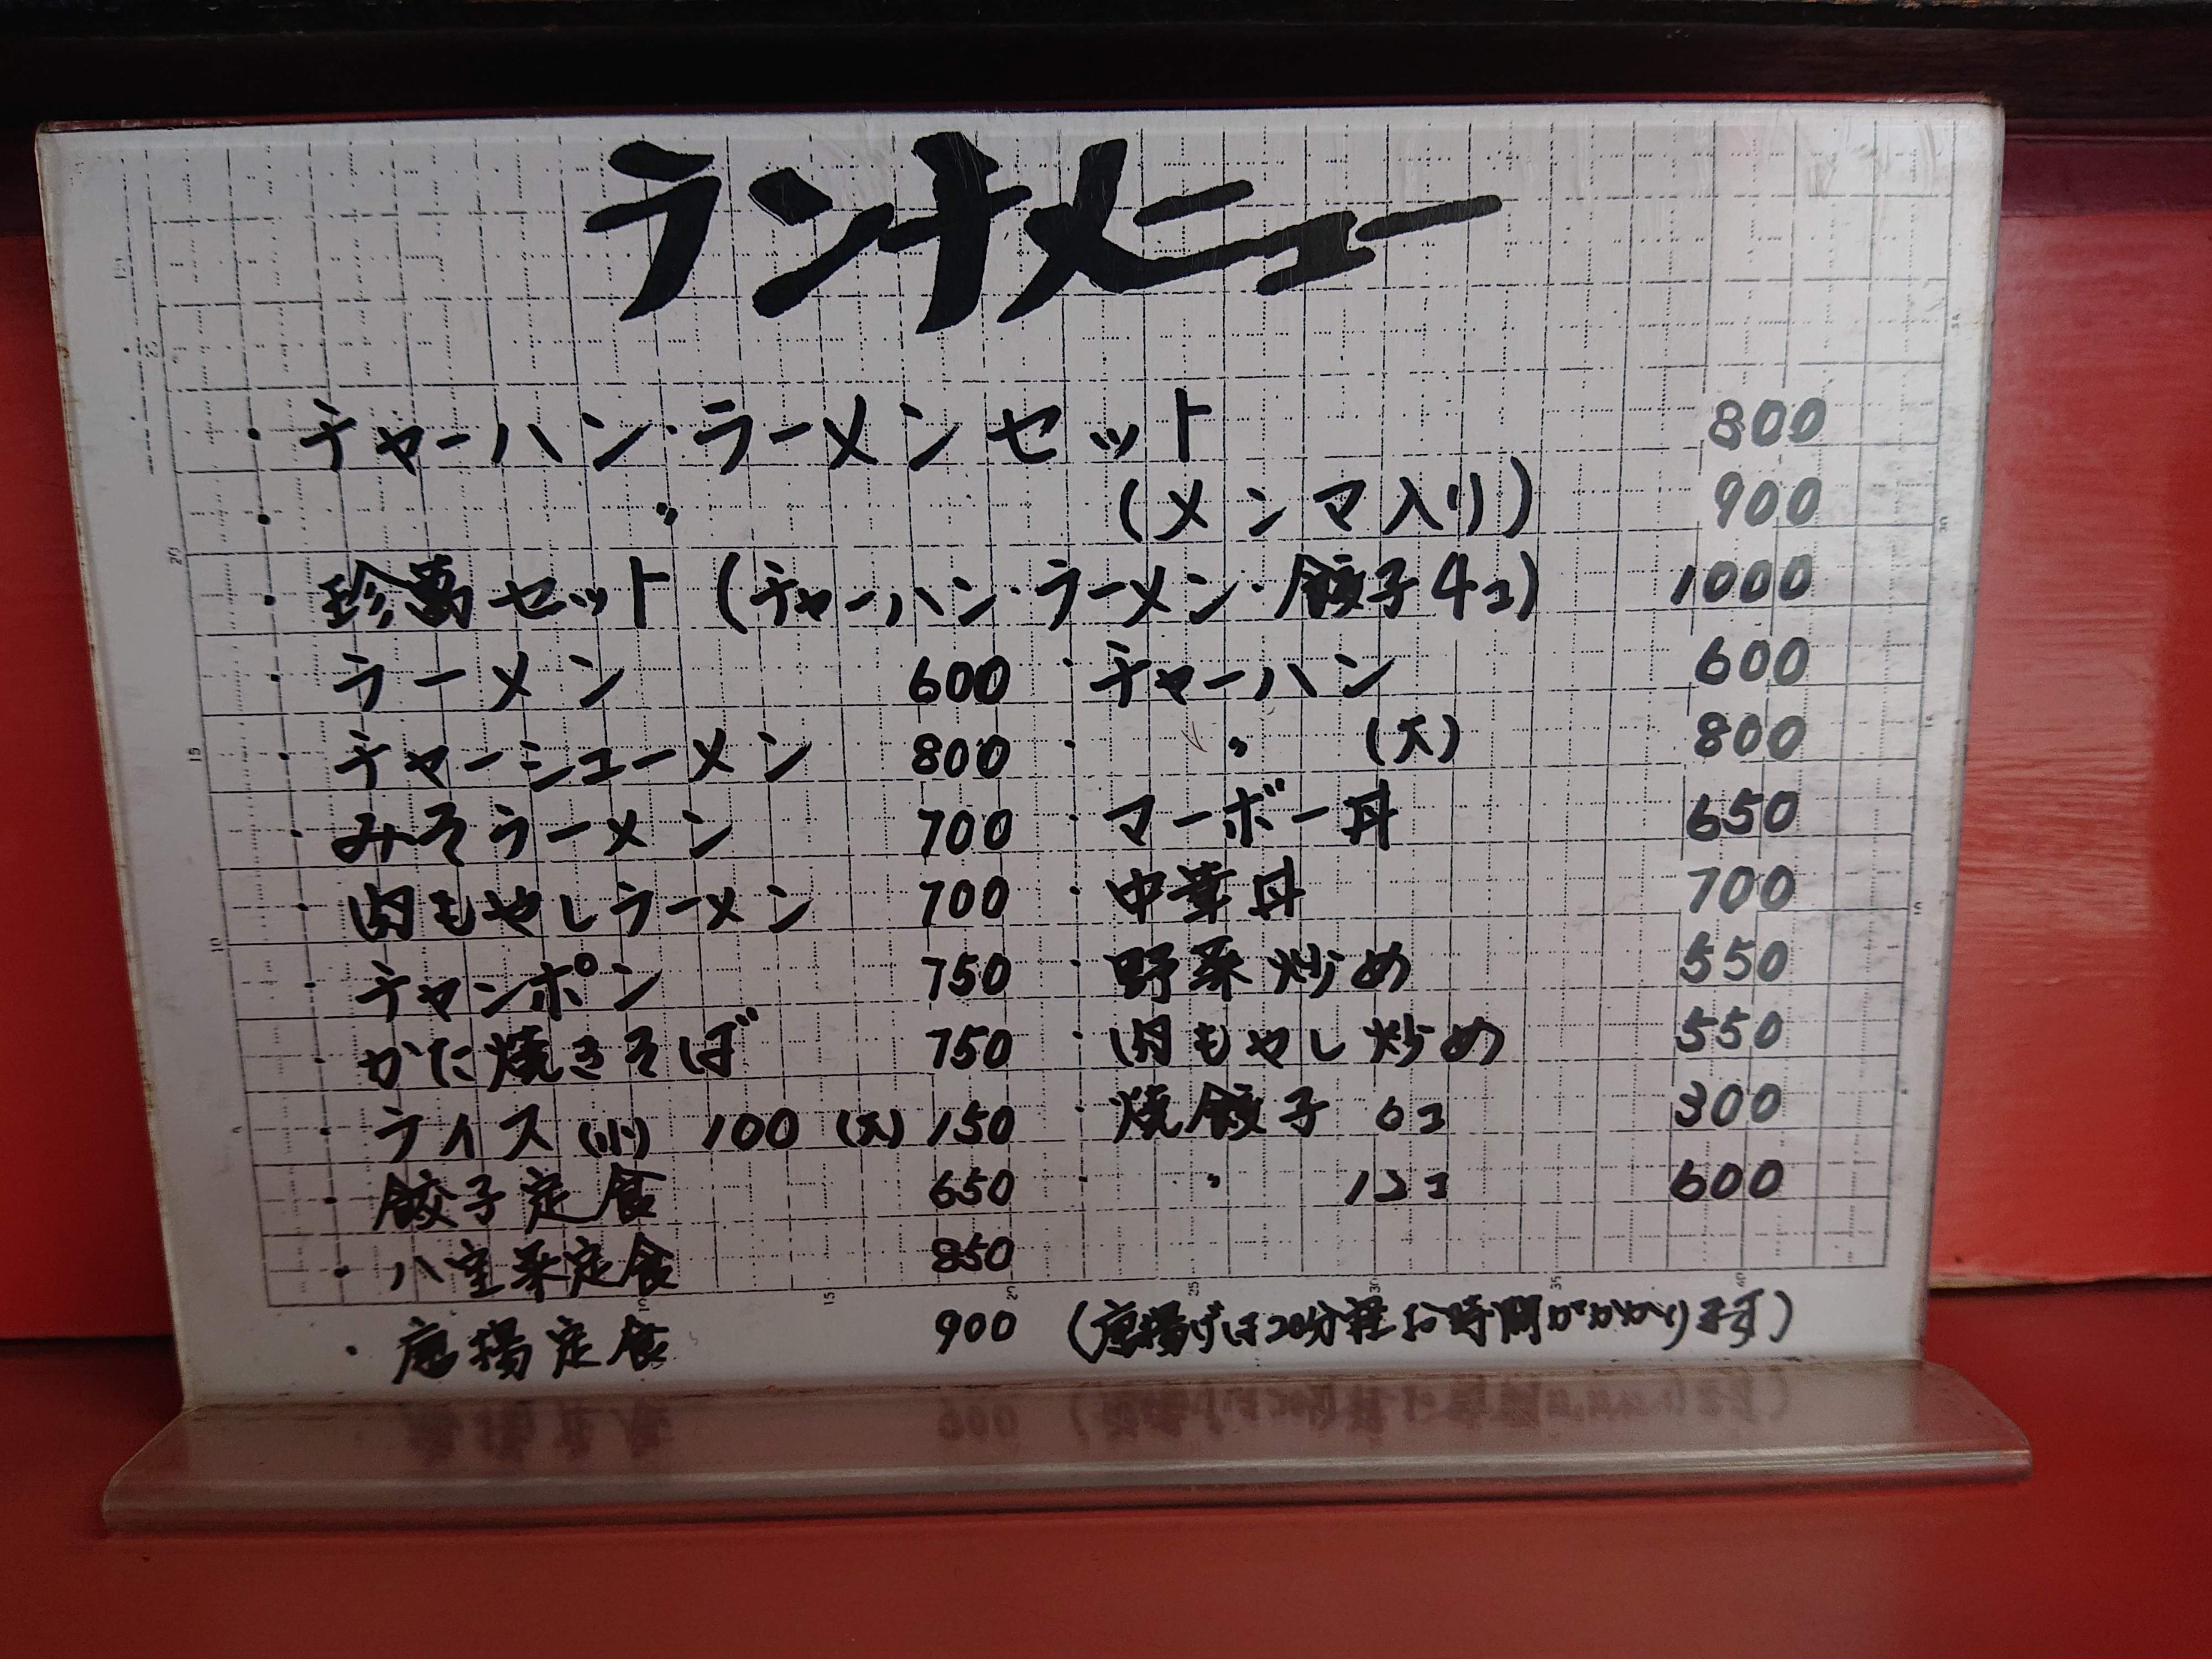 ランチメニュー
・チャーハン・ラーメンセット 800
・ 〃 (メンマ入り) 900
・珍萬セット(チャーハン・ラーメン・餃子4コ) 1000
・ラーメン 600 ・チャーハン 600
・チャーシューメン 800 ・ 〃 (大) 800
・みそラーメン 700 ・マーボー丼 650
・肉もやしラーメン 700 ・中華丼 700
・チャンポン 750 ・野菜炒め 550
・かた焼きそば 750 ・肉もやし炒め 550
・ライス(小) 100 (大) 150 ・焼餃子 6コ 300
・餃子定食 650 ・ 〃 12コ 600
・八宝菜定食 850
・唐揚定食 900 (唐揚げは20分程お時間がかかります)